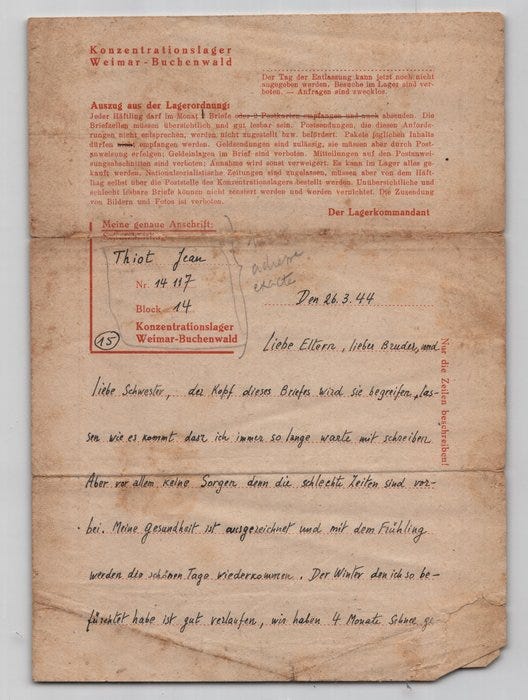 Konzentrationslager
Weimar-Buchenwald
Der Tag der Entlassung kann jetzt noch nicht
angegeben werden. Besuche im Lager sind ver-
boten. — Anfragen sind zwecklos.
Auszug aus der Lagerordnung:
Jeder Häftling darf im Monat 1 Briefe oder 2 Postkarten empfangen und auch absenden. Die
Briefzeilen müssen übersichtlich und gut lesbar sein. Postsendungen, die diesen Anforde-
rungen nicht entsprechen, werden nicht zugestellt bzw. befördert. Pakete jeglichen Inhalts
dürfen nicht empfangen werden. Geldsendungen sind zulässig, sie müssen aber durch Post-
anweisung erfolgen; Geldeinlagen im Brief sind verboten. Mitteilungen auf den Postanwei-
sungsabschnitten sind verboten; Annahme wird sonst verweigert. Es kann im Lager alles ge-
kauft werden. Nationalsozialistische Zeitungen sind zugelassen, müssen aber von dem Häft-
ling selbst über die Poststelle des Konzentrationslagers bestellt werden. Unübersichtliche und
schlecht lesbare Briefe können nicht zensiert werden und werden vernichtet. Die Zusendung
von Bildern und Fotos ist verboten.
Der Lagerkommandant
Meine genaue Anschrift:
Thiot Jean
adresse
exacte
Nr. 14 117
Block 14
Konzentrationslager
Weimar-Buchenwald
15
Den 26.3.44
Nur die Zeilen beschreiben!
Liebe Eltern, lieber Bruder, und
liebe Schwester, der Kopf dieses Briefes wird sie begreifen las-
sen wie es kommt dasz ich immer so lange warte mit schreiben
Aber vor allem keine Sorgen denn die schlechte Zeiten sind vor-
bei. Meine Gesundheit ist ausgezeichnet und mit dem Frühling
werden die schönen Tage wiederkommen. Der Winter den ich so be-
fürchtet habe ist gut verlaufen, wir haben 4 Monate Schnee ge-